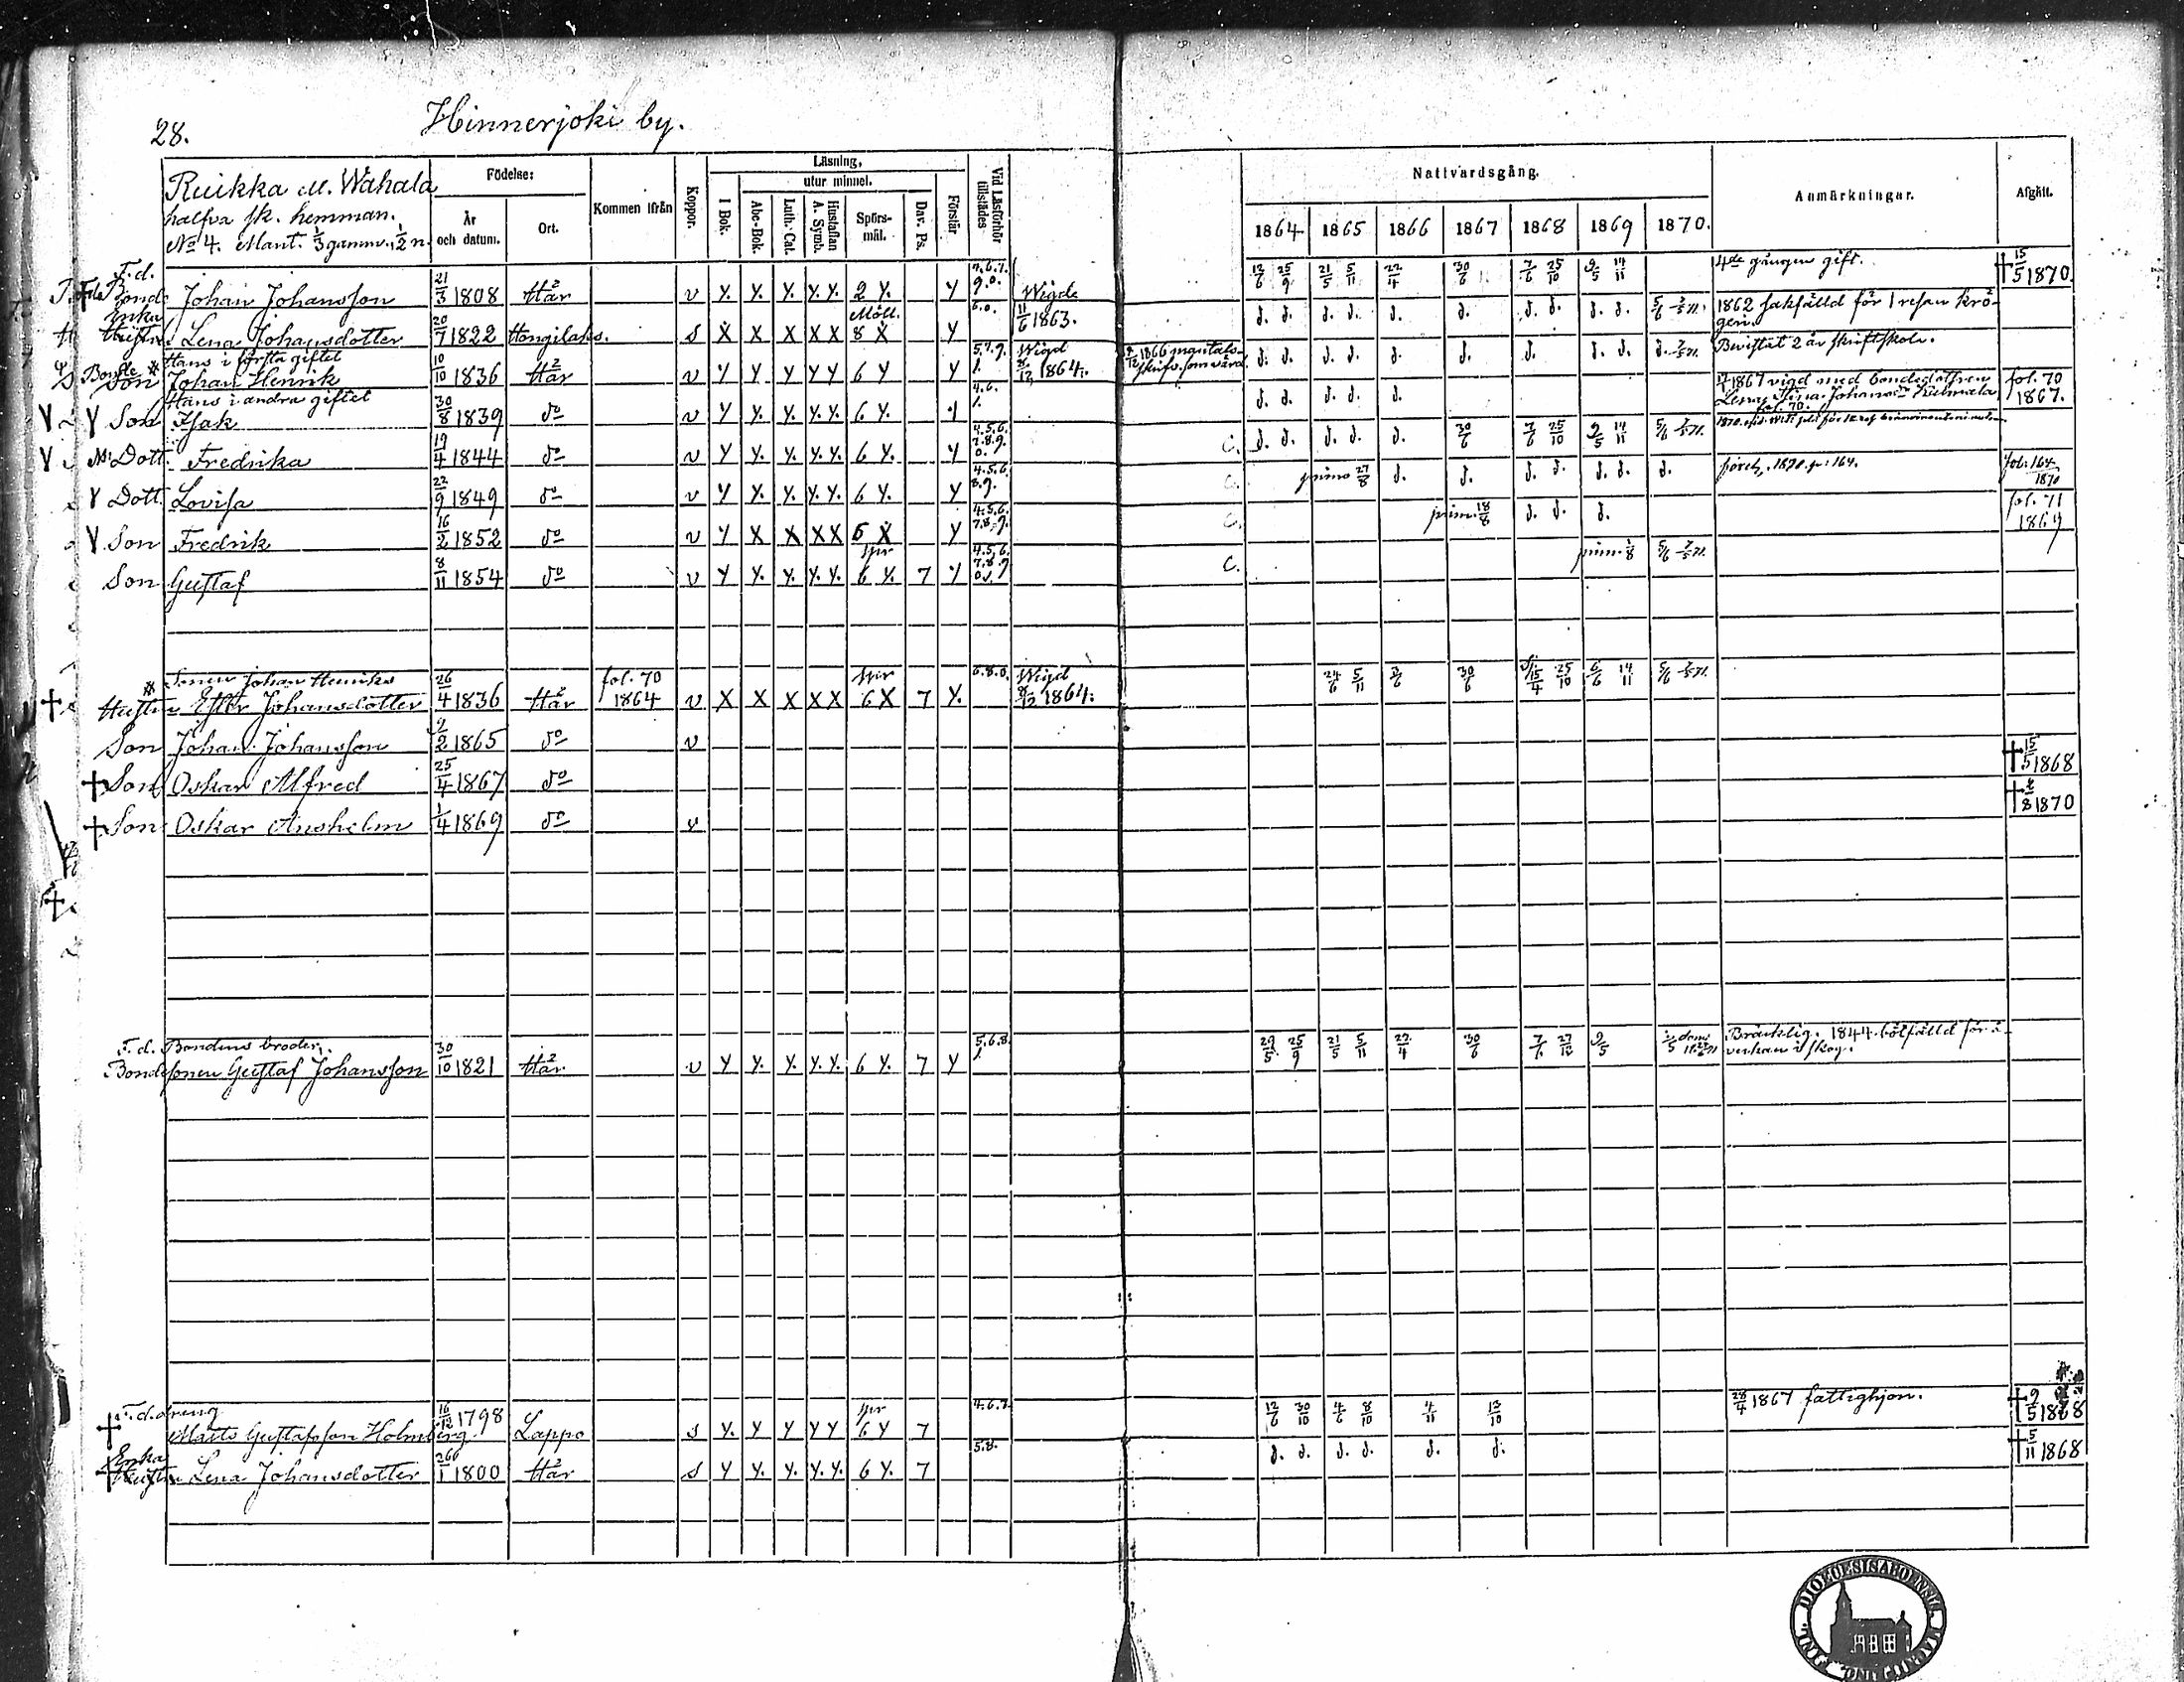 28.
Hinnerjoki by.
Ruikka M. Wahala
halfva sk. hemman.
No 4. Mant. 1/3 gamm. 1/2 n.
Födelse:
År och datum.
Ort.
Kommen ifrån
Koppor.
Läsning,
I Bok.
utur minnet.
Abc-Bok.
Luth. Cat.
Hustaflan A. Symb.
Spörsmål.
Dav. Ps.
Förstår
Vid Läsförhör tillstädes
Nattvardsgång.
1864 1865 1866 1867 1868 1869 1870.
Anmärkningar.
Afgått.
F.d. Bonde Johan Johansson 21/3 1808 Hår v y. y. y. y. y. 2 y. y 9.0. Wigde 12/6 25/9 21/5 5/11 22/4 30/6 7/6 25/10 9/5 14/11 4de gången gift. † 15/5 1870.
Enka
Hustru Lena Johansdotter 20/7 1822 Hongilaks. s X X X X X 8 X y 6.0. 11/6 1863. d. d. d. d. d. d. d. d. d. d. 5/6 1862 sakfälld för 1 resan krögeri.
Hans i första giftet
Bonde Son Johan Henrik 10/10 1836 Hår v y y y y y 6 y y 5.7.9. 1. Wigd 1864. 1866 mantalsskrifv. som värd. d. d. d. d. d. d. d. d. d. d. Bevistat 2 år skriftskola.
Hans i andra giftet
Son Isak 30/8 1839 do v y y. y. y. y. 6 y. y 4.6. 1. d. d. d. d. d. 1867 vigd med bondedottren Lena Stina Johansdr Kulmala fol. 70. fol. 70 1867.
Dott. Fredrika 19/4 1844 do v y y. y. y. y. 6 y. y 4.5.6. 7.8.9. 0. C. d. d. d. d. d. 30/6 7/6 25/10 9/5 14/11 5/6
Dott. Lovisa 22/9 1849 do v y y. y. y. y. 6 y. y 4.5.6. 8.9. C. primo 27/8 d. d. d. d. d. d. d. 1870. p: 164. fol: 164 1870
Son Fredrik 16/2 1852 do v y X X X X 5 X y 4.5.6. 7.8.9. C. prim. 18/8 d. d. d. fol. 71 1869
Son Gustaf 8/11 1854 do v y y. y. y. y. 6 y. 7 y 4.5.6. 7.8.9 0.1. C. prim. 1/8 5/6
Sonen Johan Henriks
Hustru Ester Johansdotter 26/4 1836 Hår fol. 70 1864 v X X X X X 6 X 7 y. 6.8.0. Wigd 1864. 24/6 5/11 3/6 30/6 15/4 25/10 6/6 14/11 5/6
Son Johan Johansson 2/2 1865 do v
† Son Oskar Alfred 25/4 1867 do † 15/5 1868
† Son Oskar Anshelm 1/4 1869 do v † 2/8 1870
F.d. Bondens broder,
Bondesonen Gustaf Johansson 30/10 1821 Hår v y y. y. y. y. 6 y. 7 y 5.6.8. 1. 29/5 25/9 21/5 5/11 22/4 30/6 7/6 27/12 9/5 Bräcklig. 1844. bötfälld för åverkan i skog.
F.d. dreng
† Matts Gustafsson Holmberg. 16/12 1798 Lappo s y. y. y y y 6 y 7 4.6.7. 12/6 30/10 4/6 8/10 4/11 13/10 28/4 1867 fattighjon. † 9/5 1868
Enka
† Hustru Lena Johansdotter 26/1 1800 Hår s y y. y. y. y. 6 y. 7 5.8. d. d. d. d. d. d. † 5/11 1868
DIOECESIS ABOENSIS